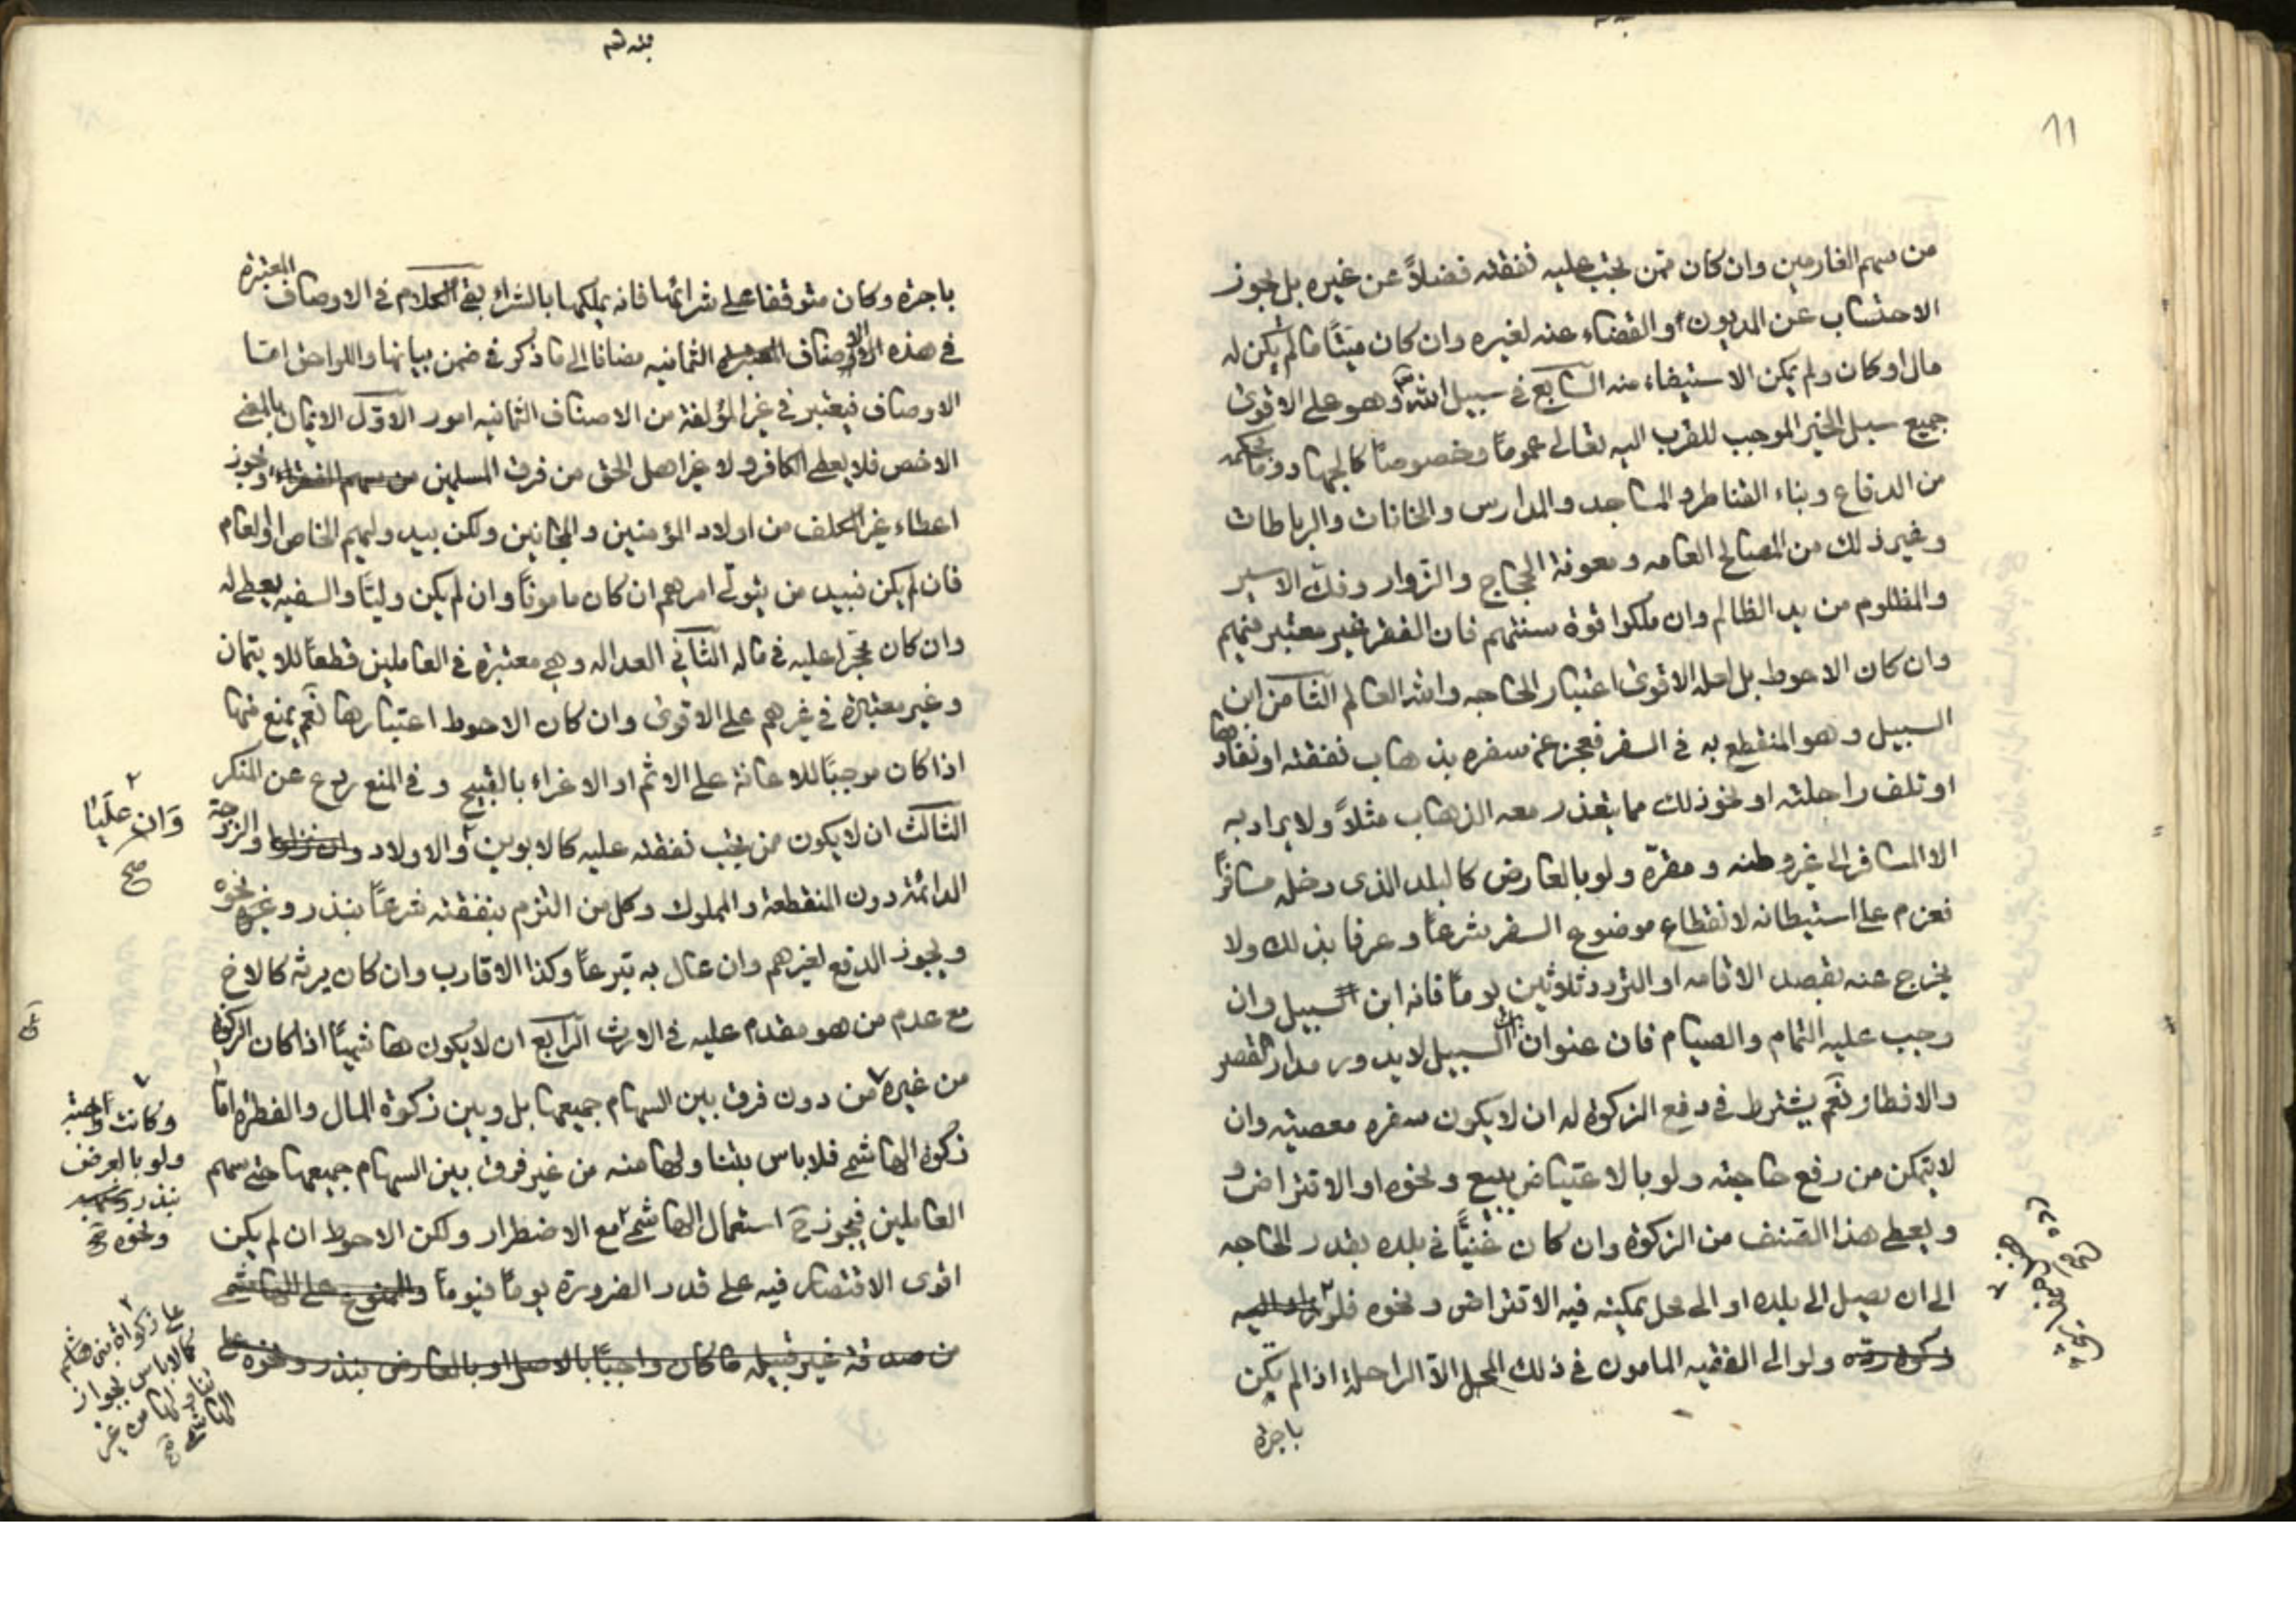 11
من سهم الغارمين وان كان ممن يجب عليه نفقته فضلاً عن غيره بل يجوز
الاحتساب عن المديون او القضاء عنه لغيره وان كان ميتاً ما لم يكن له
مال او كان ولم يمكن الاستيفاء منه السابع في سبيل الله وهو على الاقوى
جميع سبل الخير الموجب للقرب اليه تعالى عموماً وخصوصاً كالجهاد وما بحكمه
من الدفاع وبناء القناطر والمساجد والمدارس والخانات والرباطات
وغير ذلك من المصالح العامه ومعونة الحجاج والزوار وفك الاسير
والمظلوم من يد الظالم وان ملكوا قوة سنتهم فان الفقر غير معتبر فيهم
وان كان الاحوط بل لعله الاقوى اعتبار الحاجه والله العالم الثامن ابن
السبيل وهو المنقطع به في السفر فعجز عن سفره بذهاب نفقته او نفادها
او تلف راحلته او نحو ذلك مما يتعذر معه الذهاب مثلاً ولا يراد به
الا المسافر الى غير وطنه ومقره ولو بالعارض كالبلد الذى دخله مسافراً
فعزم على استيطانه لانقطاع موضوع السفر شرعاً وعرفا بذلك ولا
يخرج عنه بقصد الاقامه او التردد ثلاثين يوماً فانه ابن السبيل وان
وجب عليه التمام والصيام فان عنوان ابن السبيل لا يدور مدار القصر
والافطار نعم يشترط في دفع الزكوة له ان لا يكون سفره معصيه وان
لا يتمكن من رفع حاجته ولو بالاعتياض ببيع ونحوه او الاقتراض و
ويعطى هذا الصنف من الزكوة وان كان غنياً في بلده بقدر الحاجه
الى ان يصل الى بلده او الى محل يمكنه فيه الاقتراض ونحوه فلو
ولو الى الفقيه المامون في ذلك المحل الا الراحلة اذا لم يكن
باجرة
باجرة وكان متوقفا على شرائها فانه يملكها بالشراء بقى الكلام في الاوصاف المعتبرة
في هذه الاصناف الثمانيه مضافا الى ما ذكر في ضمن بيانها واللواحق اما
الاوصاف فيعتبر في غير المؤلفة من الاصناف الثمانيه امور الاول الايمان بالمعنى
الاخص فلا يعطى الكافر ولا غير اهل الحق من فرق المسلمين من سهم الفقراء ويجوز
اعطاء غير المكلف من اولاد المؤمنين والمجانين ولكن بيد وليهم الخاص او العام
فان لم يكن فبيد من يتولى امرهم ان كان ماموناً وان لم يكن ولياً والسفيه يعطى له
وان كان محجراً عليه في ماله الثاني العداله وهى معتبرة في العاملين قطعاً للايتمان
وغير معتبرة في غيرهم على الاقوى وان كان الاحوط اعتبارها نعم يمنع منها
اذا كان موجباً للاعانة على الاثم او الاغراء بالقبيح وفي المنع ردع عن المنكر
الثالث ان لا يكون ممن يجب نفقته عليه كالابوين والاولاد وان نزلوا والزوجة
الدائمة دون المنقطعة والمملوك وكل من التزم بنفقته شرعاً بنذر ونحوه
ويجوز الدفع لغيرهم وان عال به تبرعاً وكذا الاقارب وان كان يرثه كالاخ
مع عدم من هو مقدم عليه في الارث الرابع ان لا يكون هاشمياً اذا كان الزكوة
من غيره من دون فرق بين السهام جميعها بل وبين زكوة المال والفطرة اما
زكوة الهاشمى فلا باس بتناولها منه من غير فرق بين السهام جميعها حتى سهم
العاملين فيجوز استعمال الهاشمى مع الاضطرار ولكن الاحوط ان لم يكن
اقوى الاقتصار فيه على قدر الضرورة يوماً فيوماً والممنوع على الهاشمى
من صدقة غير قبيله ما كان واجباً بالاصل او بالعارض بنذر ونحوه على
وان عليا
صح
وكانت واجبة
ولو بالعرض
بنذر
ونحوه صح
على زكواة بنى هاشم
كما لا باس بجواز
تناولها من غير
الهاشمى صح